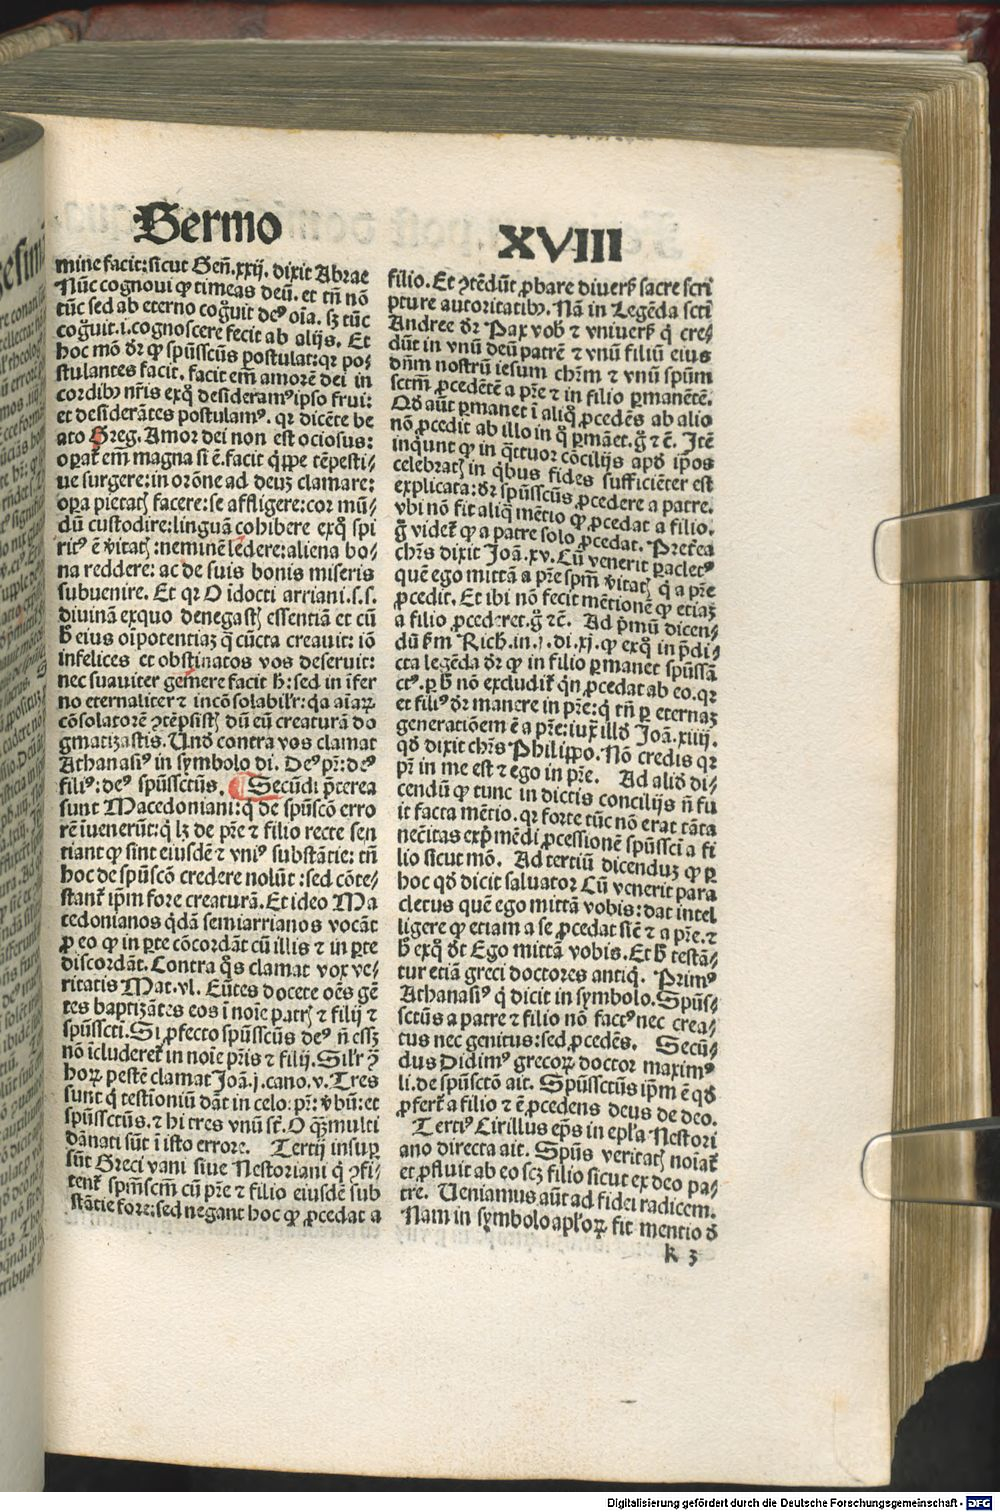 Sermo
XVIII
mine facit: sicut Geñ. xxij. dixit Abrae
Nũc cognoui ꝙ timeas deũ. et tñ nõ
tũc sed ab eterno cogͣuit deꝰ oĩa. sꝫ tũc
cogͣuit. i. cognoscere fecit ab alijs. Et
hoc mõ dr̃ ꝙ spũssctũs postulat: qꝛ po⸗
stulantes facit. facit em̃ amorẽ dei in
cordibꝰ nr̃is ex quo desideramꝰ ipso frui:
et desiderãtes postulamꝰ. qꝛ dicẽte be
ato Greg. Amor dei non est ociosus:
operat̃ em̃ magna si ẽ. facit q̃ꝑpe tẽpesti⸗
ue surgere: in orõne ad deuꝫ clamare:
oꝑa pietatꝭ facere: se affligere: cor mũ⸗
dũ custodire: linguã cohibere exq̃ spi
ritꝰ ẽ v̓itatꝭ: neminẽ ledere: aliena bo⸗
na reddere: ac de suis bonis miseris
subuenire. Et qꝛ O idocti arriani. s. s.
diuinã exquo denegastꝭ essentiã et cũ
h̓ eius oĩpotentiaꝫ q̃ cũcta creauit: iõ
infelices et obstinatos vos deseruit:
nec suauiter gemere facit h̓: sed in ĩfer
no eternaliter ⁊ incõsolabilr̃: q̃a aĩaꝝ
cõsolatorẽ ꝯtẽpsistꝭ dũ eũ creaturã do
gmatizastis. Unđ contra vos clamat
Athanasiꝰ in symbolo di. Deꝰ pr̃: deꝰ
filiꝰ: deꝰ spũssctũs. Secũdi p̃terea
sunt Macedoniani: q̃ de spũscõ erro
rẽ iuenerũt: q̃ lꝫ de pr̃e ⁊ filio recte sen
tiant ꝙ sint eiusdẽ ⁊ vniꝰ substãtie: tñ
hoc de spũscõ credere nolũt: sed cõte⸗
stant̃ ip̃m fore creaturã. Et ideo Ma
cedonianos q̃dã semiarrianos vocãt
ꝓ eo ꝙ in ꝑte cõcordãt cũ illis ⁊ in ꝑte
discordãt. Contra q̃s clamat vox ve⸗
ritatis Mat. vl. Eũtes docete oẽs gẽ
tes baptizãtes eos ĩ noĩe patrꝭ ⁊ filij ⁊
spũsscti. Si ꝓfecto spũsscũs deꝰ ñ eẽꝫ
nõ ĩcluderet̃ in noĩe pr̃is ⁊ filij. Silr̃ ꝯ̃
hoꝝ pestẽ clamat Joã. j. cano. v. Tres
sunt q̃ testĩoniũ dãt in celo. pr̃: v̓bũ: et
spũssctũs. ⁊ hi tres vnũ st̃. O q̃ꝫ multi
dãnati sũt ĩ isto errore. Tertij insuꝑ
sũt Greci vani siue Nestoriani q̃ ꝯfi⸗
tent̃ spm̃scm̃ cũ pr̃e ⁊ filio eiusdẽ sub
stãtie fore: sed negant hoc ꝙ ꝓcedat a
filio. Et ꝯtẽdũt ꝓbare diuers̃ sacre scri
pture autoritatibꝰ. Nã in Legẽda scti
Andree dr̃ Pax vob̃ ⁊ vniuers̃ q̃ cre⸗
dũt in vnũ deũ patrẽ ⁊ vnũ filiũ eius
dñm nostrũ iesum chr̃m ⁊ vnũ spũm
sctm̃ ꝓcedẽtẽ a pr̃e ⁊ in filio ꝑmanẽtẽ.
Qđ aũt ꝑmanet ĩ aliq̃ ꝓcedẽs ab alio
nõ ꝓcedit ab illo in q̃ ꝑmãet. g̃ ⁊ c̃. Itẽ
inq̃unt ꝙ in q̃ttuor cõcilijs apđ ip̃os
celebratꝭ in q̃bus fides sufficiẽter est
explicata: dr̃ spũsscũs ꝓcedere a patre.
vbi nõ fit aliq̃ mẽtio ꝙ ꝓcedat a filio.
g̃ videt̃ ꝙ a patre solo ꝓcedat. Pret̃ea
chr̃s dixit Joã. xv. Cũ venerit ꝑacletꝰ
quẽ ego mittã a pr̃e spm̃ v̓itatꝭ q̃ a pr̃e
ꝓcedit. Et ibi nõ fecit mẽtionẽ ꝙ etiaꝫ
a filio ꝓcederet. g̃ ⁊ c̃. Ad p̃mũ dicen⸗
dũ ẜm Rich. in. j. di. xj. ꝙ exq̃ in p̃di⸗
cta legẽda dr̃ ꝙ in filio ꝑmanet spũssã
ctꝰ. ꝑ h̓ nõ excludit̃ q̃n ꝓcedat ab eo. qꝛ
et filiꝰ dr̃ manere in pr̃e: q̃ tñ ꝑ eternaꝫ
generatiõem ẽ a pr̃e: iux̃ illđ Joã. xiiij.
qđ dixit chr̃s Philippo. Nõ credis qꝛ
pr̃ in me est ⁊ ego in pr̃e. Ad aliđ di⸗
cendũ ꝙ tunc in dictis concilijs ñ fu
it facta mẽtio. qꝛ forte tũc nõ erat tãta
necẽitas exp̃mẽdi ꝓcessionẽ spũssci a fi
lio sicut mõ. Ad tertiũ dicenduꝫ ꝙ ꝑ
hoc qđ dicit saluator Cũ venerit para
cletus quẽ ego mittã vobis: dat intel
ligere ꝙ etiam a se ꝓcedat sic̃ ⁊ a pr̃e. ⁊
h̓ exq̃ đt Ego mittã vobis. Et h̓ testã⸗
tur etiã greci doctores antiq̃. Primꝰ
Athanasiꝰ q̃ dicit in symbolo. Spũs⸗
sctũs a patre ⁊ filio nõ factꝰ nec crea⸗
tus nec genitus: sed ꝓcedẽs. Secũ⸗
dus Didimꝰ grecoꝝ doctor maximꝰ
li. de spũsctõ ait. Spũssctũs ip̃m ẽ qđ
ꝓfert̃ a filio ⁊ ẽ ꝓcedens deus de deo.
Tertiꝰ Cirillus ep̃s in epl̃a Nestori
ano directa ait. Spũs veritatꝭ noĩat̃
et ꝓfluit ab eo scꝫ filio sicut ex deo pa⸗
tre. Ueniamus aũt ad fidei radicem.
Nam in symbolo apl̃oꝝ fit mentio đ
k 3
Digitalisierung gefördert durch die Deutsche Forschungsgemeinschaft - DFG